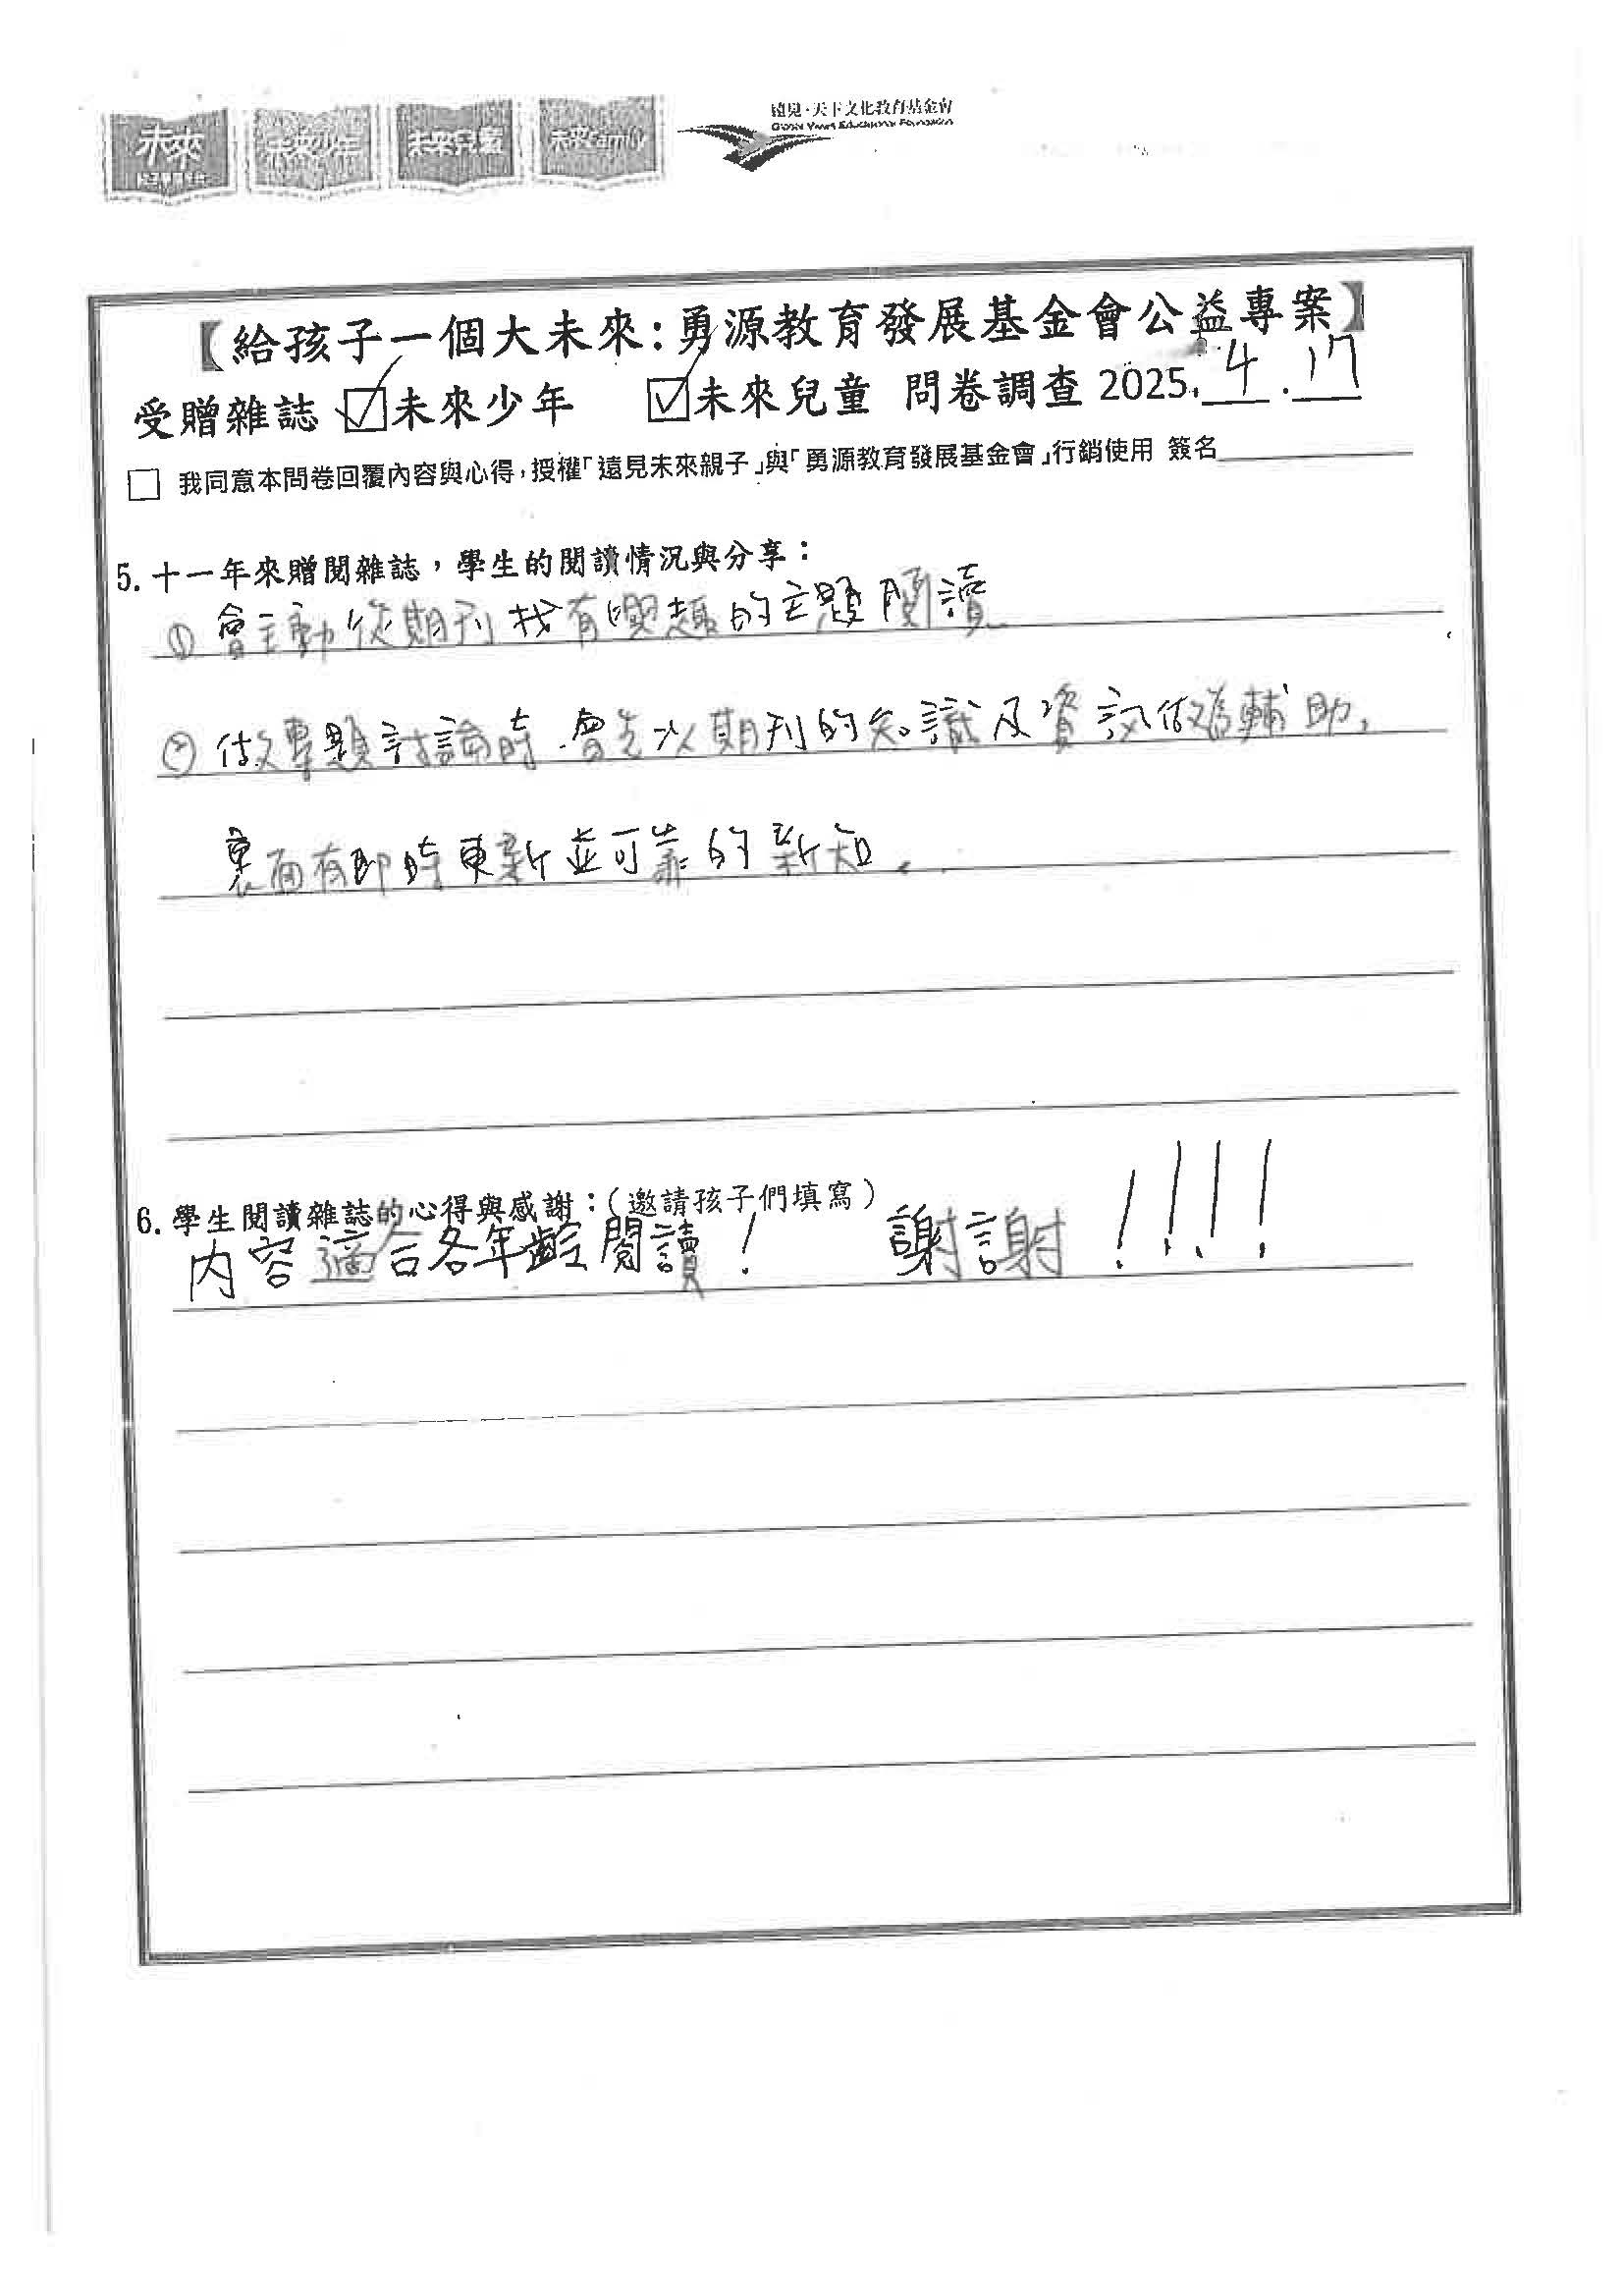 未來
未來少年
未來兒童
未來Family
遠見·天下文化教育基金會
Global Views Educational Foundation
【給孩子一個大未來:勇源教育發展基金會公益專案】
受贈雜誌 ☑未來少年 ☑未來兒童 問卷調查 2025.4.17
□ 我同意本問卷回覆內容與心得,授權「遠見未來親子」與「勇源教育發展基金會」行銷使用 簽名
5.十一年來贈閱雜誌,學生的閱讀情況與分享:
① 會主動從期刊找有興趣的主題閱讀
② 做專題討論時.會先以期刊的知識及資訊做為輔助,
裏面有即時更新並可靠的新知。
6.學生閱讀雜誌的心得與感謝:(邀請孩子們填寫)
內容適合各年齡閱讀! 謝謝!!!!